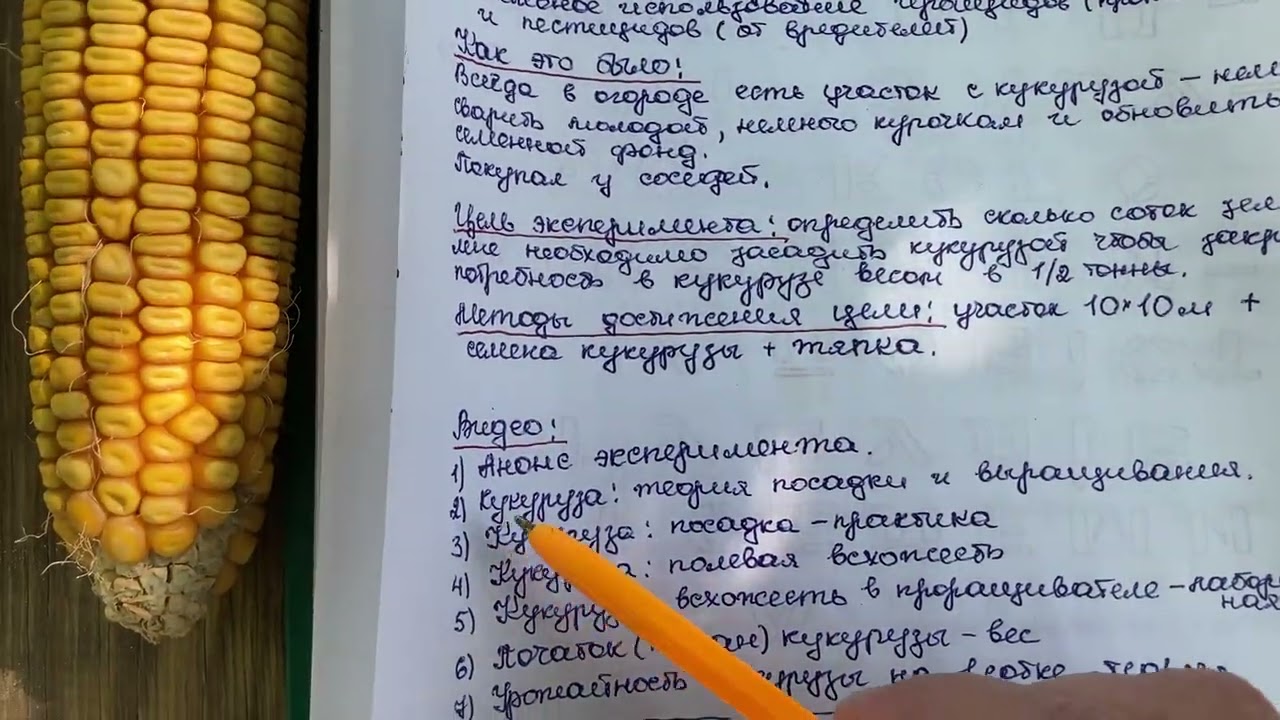 использование
и пестицидов (от вредителей)
Как это было:
Всегда в огороде есть участок с кукурузой –
сварить молодой, немного курочкам и обновить
семенной фонд.
Покупал у соседей.
Цель эксперимента: определить сколько соток
мне необходимо засадить кукурузой чтобы
потребность в кукурузе весом в 1/2 тонны.
Методы достижения цели: участок 10×10м +
семена кукурузы + тяпка.
Видео:
1) Анонс эксперимента.
2) Кукуруза: теория посадки и выращивания.
3) Кукуруза: посадка – практика
4) Кукуруза: полевая всхожесть
5) всхожесть в проращивателе –
6) Початок ( кукурузы – вес
7) Урожайность